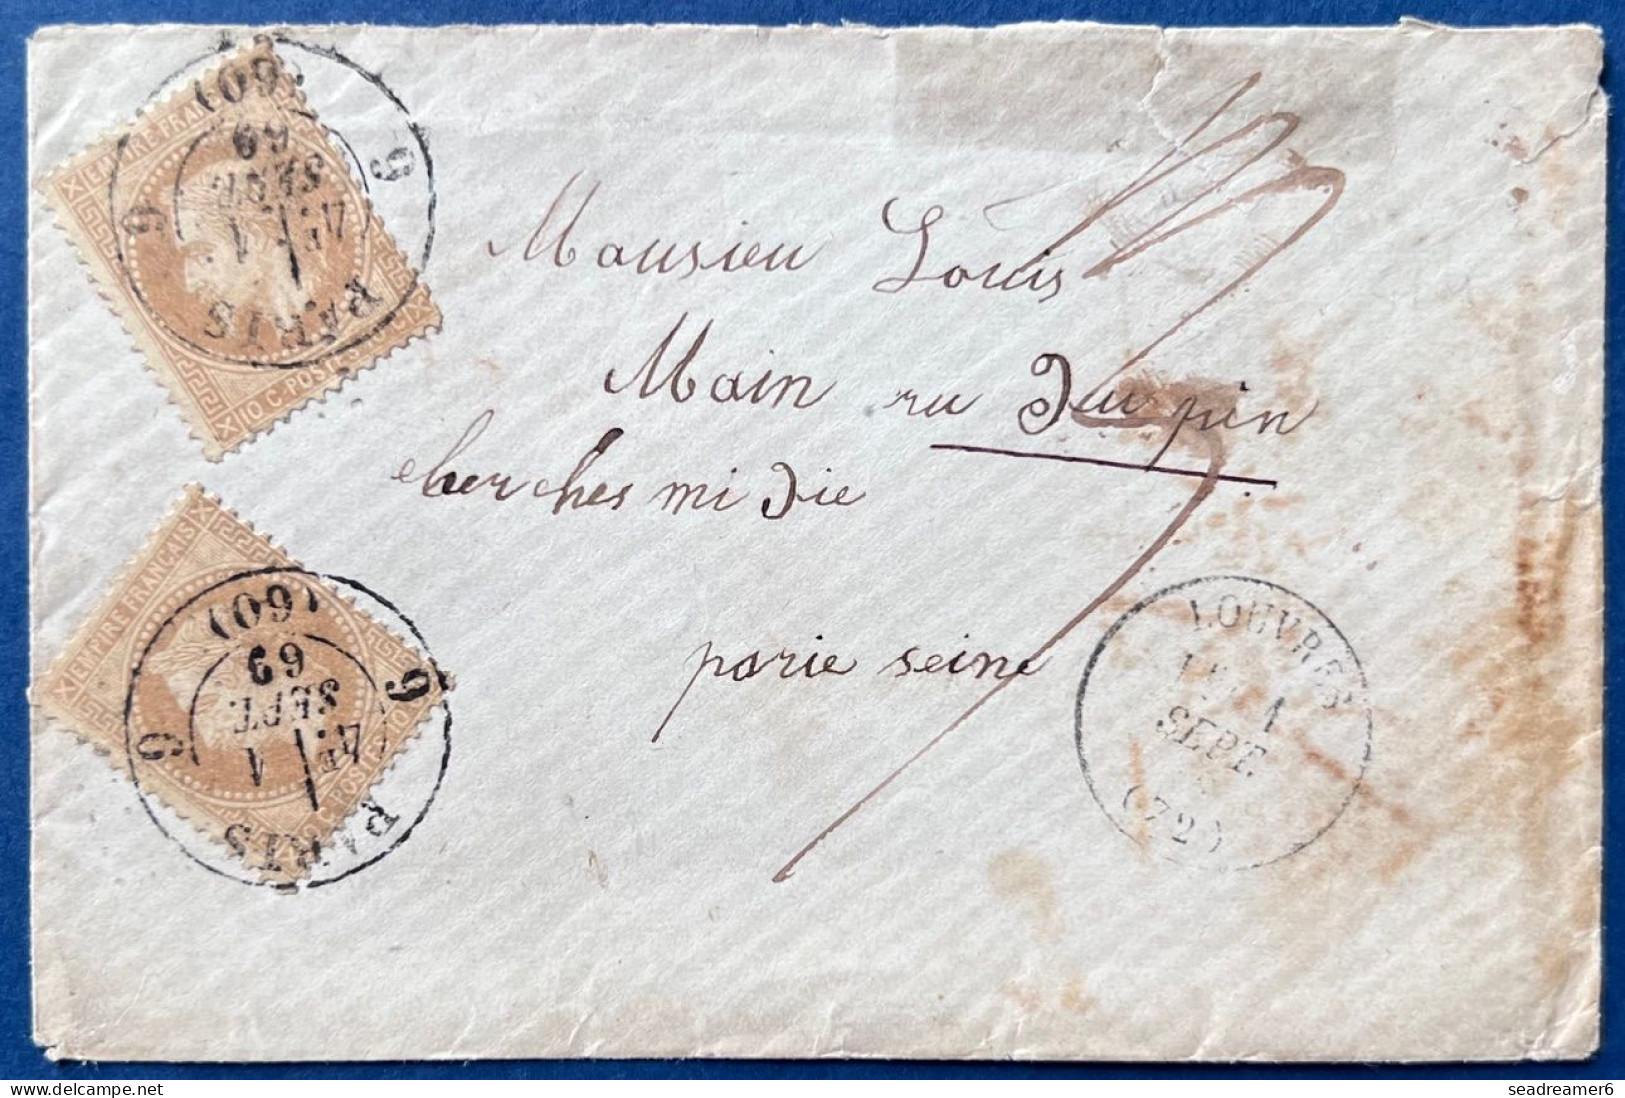 EMPIRE FRANC
10 C. POSTES
PARIS
(60)
6
6
4E
1
SEPT
69
Monsieu Louis
Main ru Dupin
cherches mi Die
parie seine
EMPIRE FRANÇAIS
C. POSTES 10
PARIS
(60)
6
6
4E
1
SEPT
69
LOUVRES
1
SEPT.
(72)
seadreamer6